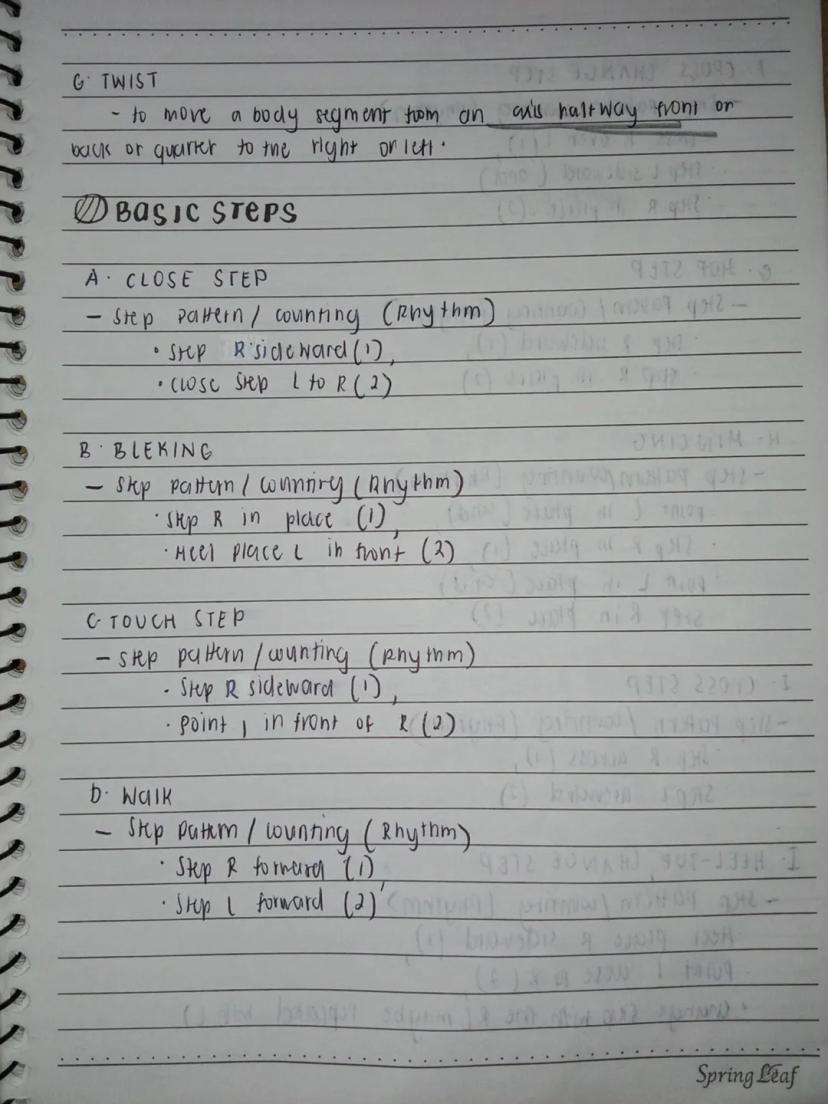 G. TWIST
- to move a body segment from an axis halfway front or
back or quarter to the right or left.
BASIC STEPS
A. CLOSE STEP
- Step pattern / counting (Rhythm)
• Step R sideward (1),
• Close Step L to R (2)
B. BLEKING
- Step pattern / counting (Rhythm)
• Step R in place (1),
• Heel place L in front (2)
C. TOUCH STEP
- Step pattern / counting (Rhythm)
• Step R sideward (1),
• Point L in front of R (2)
D. Walk
- Step pattern / counting (Rhythm)
• Step R forward (1),
• Step L forward (2)
Spring Leaf